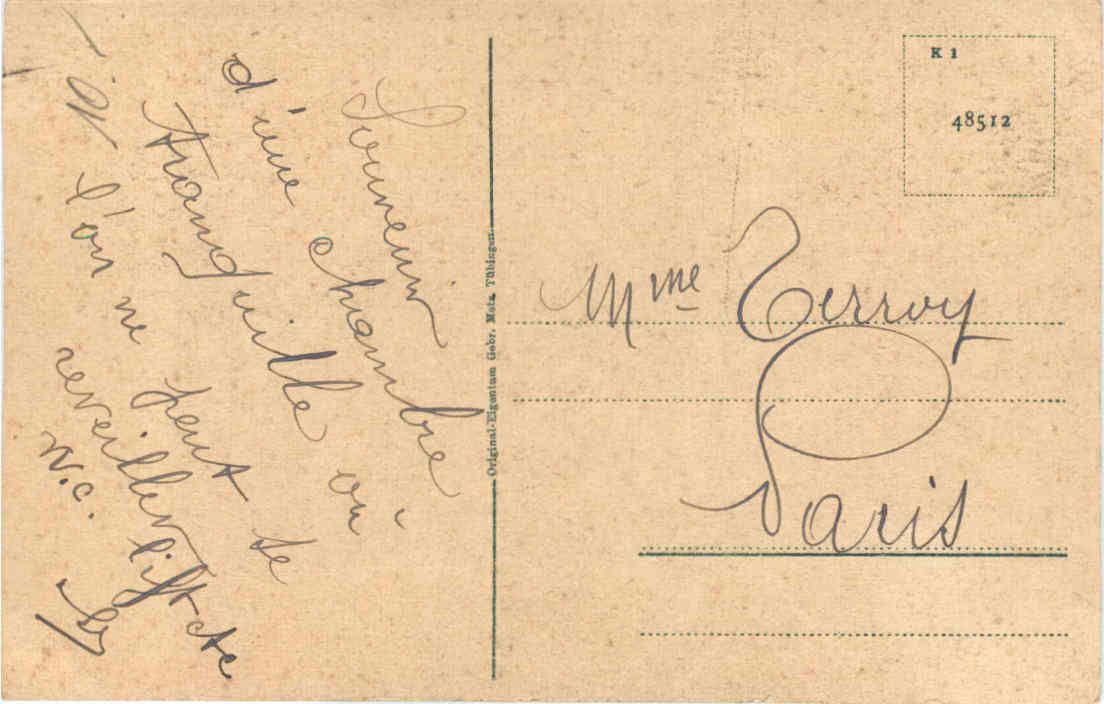 Souvenir
d'une chambre
tranquille où
l'on ne peut se
reveiller lift etc
W.C.
Original-Eigentum Gebr. Metz, Tübingen.
K 1
48512
Mme Terroy
Paris